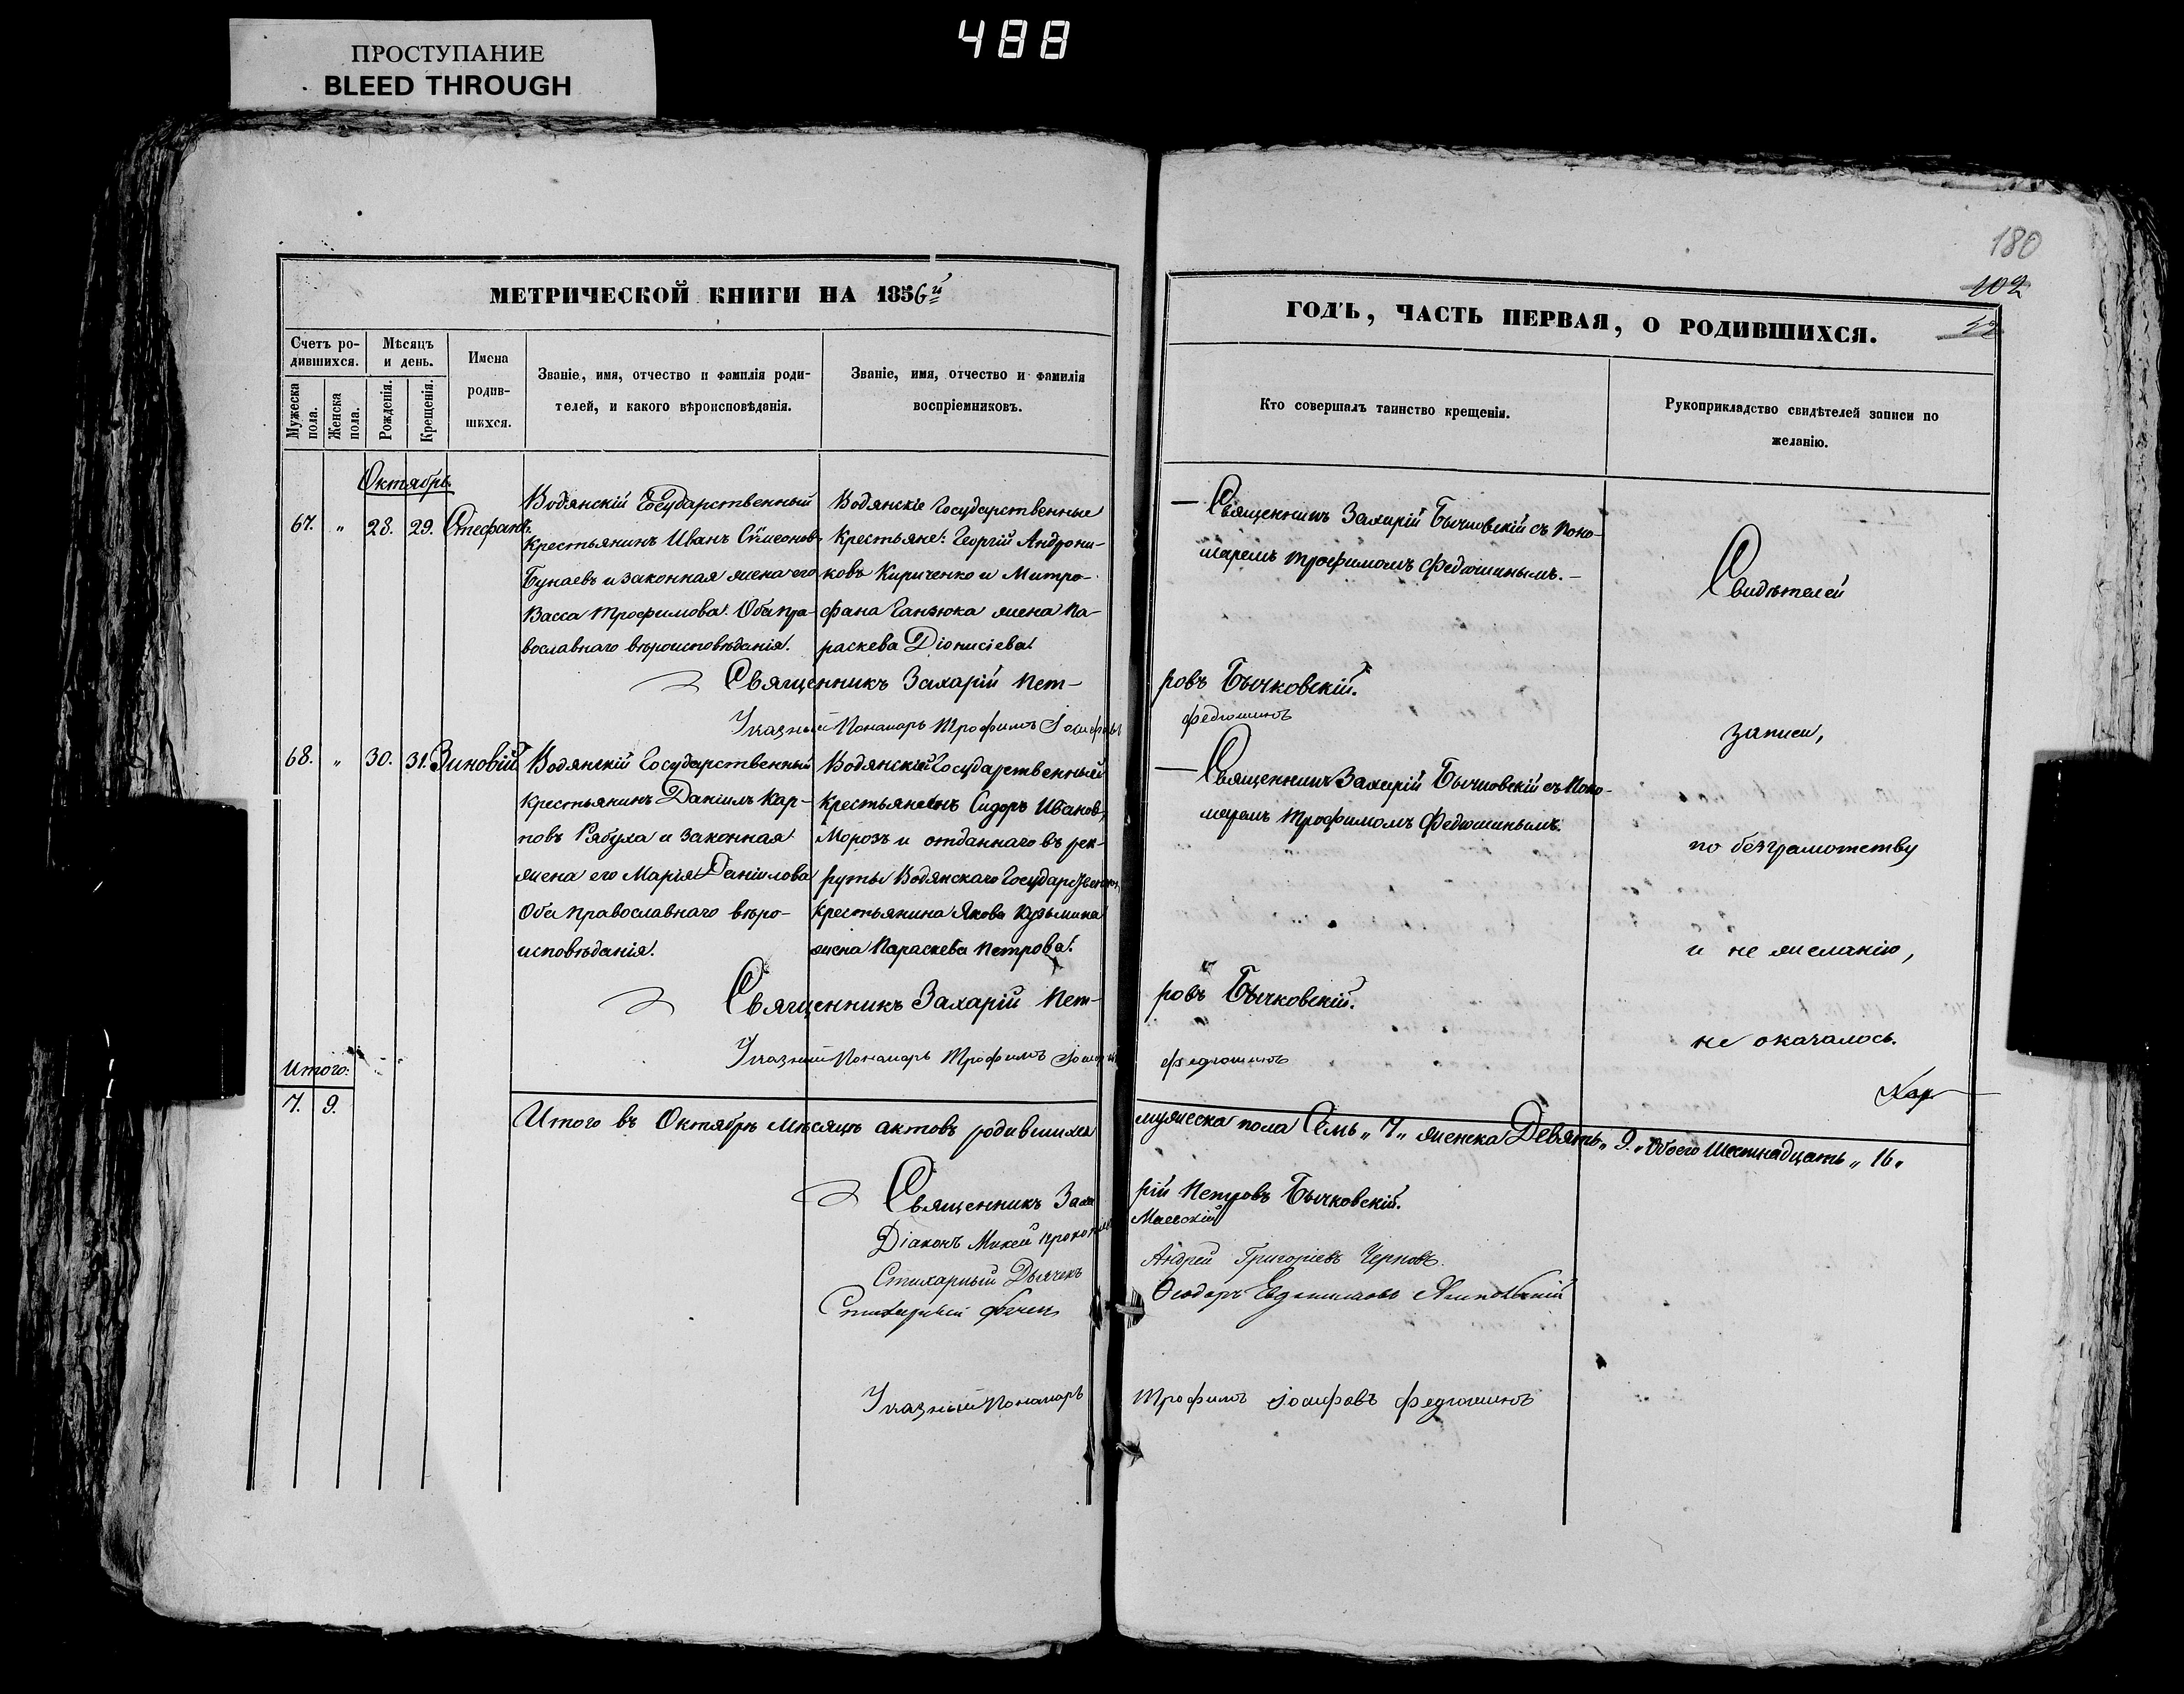 488
ПРОСТУПАНИЕ
BLEED THROUGH
180
102
МЕТРИЧЕСКОЙ КНИГИ НА 1856й
ГОДЪ, ЧАСТЬ ПЕРВАЯ, О РОДИВШИХСЯ.
Счетъ ро-
дившихся.
Мужеска
пола.
Женска
пола.
Мѣсяцъ
и день.
Рожденія.
Крещенія.
Имена
родив-
шихся.
Званіе, имя, отчество и фамилія роди-
телей, и какого вѣроисповѣданія.
Званіе, имя, отчество и фамилія
воспріемниковъ.
Кто совершалъ таинство крещенія.
Рукоприкладство свидѣтелей записи по
желанію.
Октябрь.
67. „ 28. 29. Стефанъ
Водянскій Государственный
Крестьянинъ Иванъ Сѵмеоновъ
Бунаевъ и законная жена его
Васса Трофимова. Оба пра-
вославнаго вѣроисповѣданія.
Водянскіе Государственные
Крестьяне: Георгій Андрони-
ковъ Кириченко и Митро-
фана Ганзюка жена Па-
раскева Діонисіева.
— Священникъ Захарій Бычковскій съ Поно-
маремъ Трофимомъ Федюшинымъ.—
Священникъ Захарій Пет-
ровъ Бычковскій.
Указный Понамарь Трофимъ Іосифовъ
Федюшинъ
68. „ 30. 31. Зиновій
Водянскій Государственный
Крестьянинъ Даніилъ Кар-
повъ Рябуха и законная
жена его Марія Даніилова
Оба православнаго вѣро-
исповѣданія.
Водянскій Государственный
Крестьянинъ Сидоръ Ивановъ
Морозъ и отданнаго въ рек-
руты Водянскаго Государственн.
Крестьянина Якова Кузьмина
жена Параскева Петрова.
— Священникъ Захарій Бычковскій съ Поно-
маремъ Трофимомъ Федюшинымъ.
Священникъ Захарій Пет-
ровъ Бычковскій.
Указный Понамарь Трофимъ Іосифовъ
Федюшинъ
Свидѣтелей
записи,
по безграмотству
и не желанію,
не оказалось.
Итого:
7. 9.
Итого въ Октябрѣ мѣсяцѣ актовъ родившихся
мужеска пола Семь „7„ женска Девять „9„ Обоего Шестнадцать „16„
Священникъ Заха
рій Петровъ Бычковскій.
Діаконъ Михей Прокопіев
Маевскій
Стихарный Дьячекъ
Андрей Григоріевъ Черновъ.
Стихарный
Ѳеодоръ
Указный Понамарь
Трофимъ Іосифовъ Федюшинъ